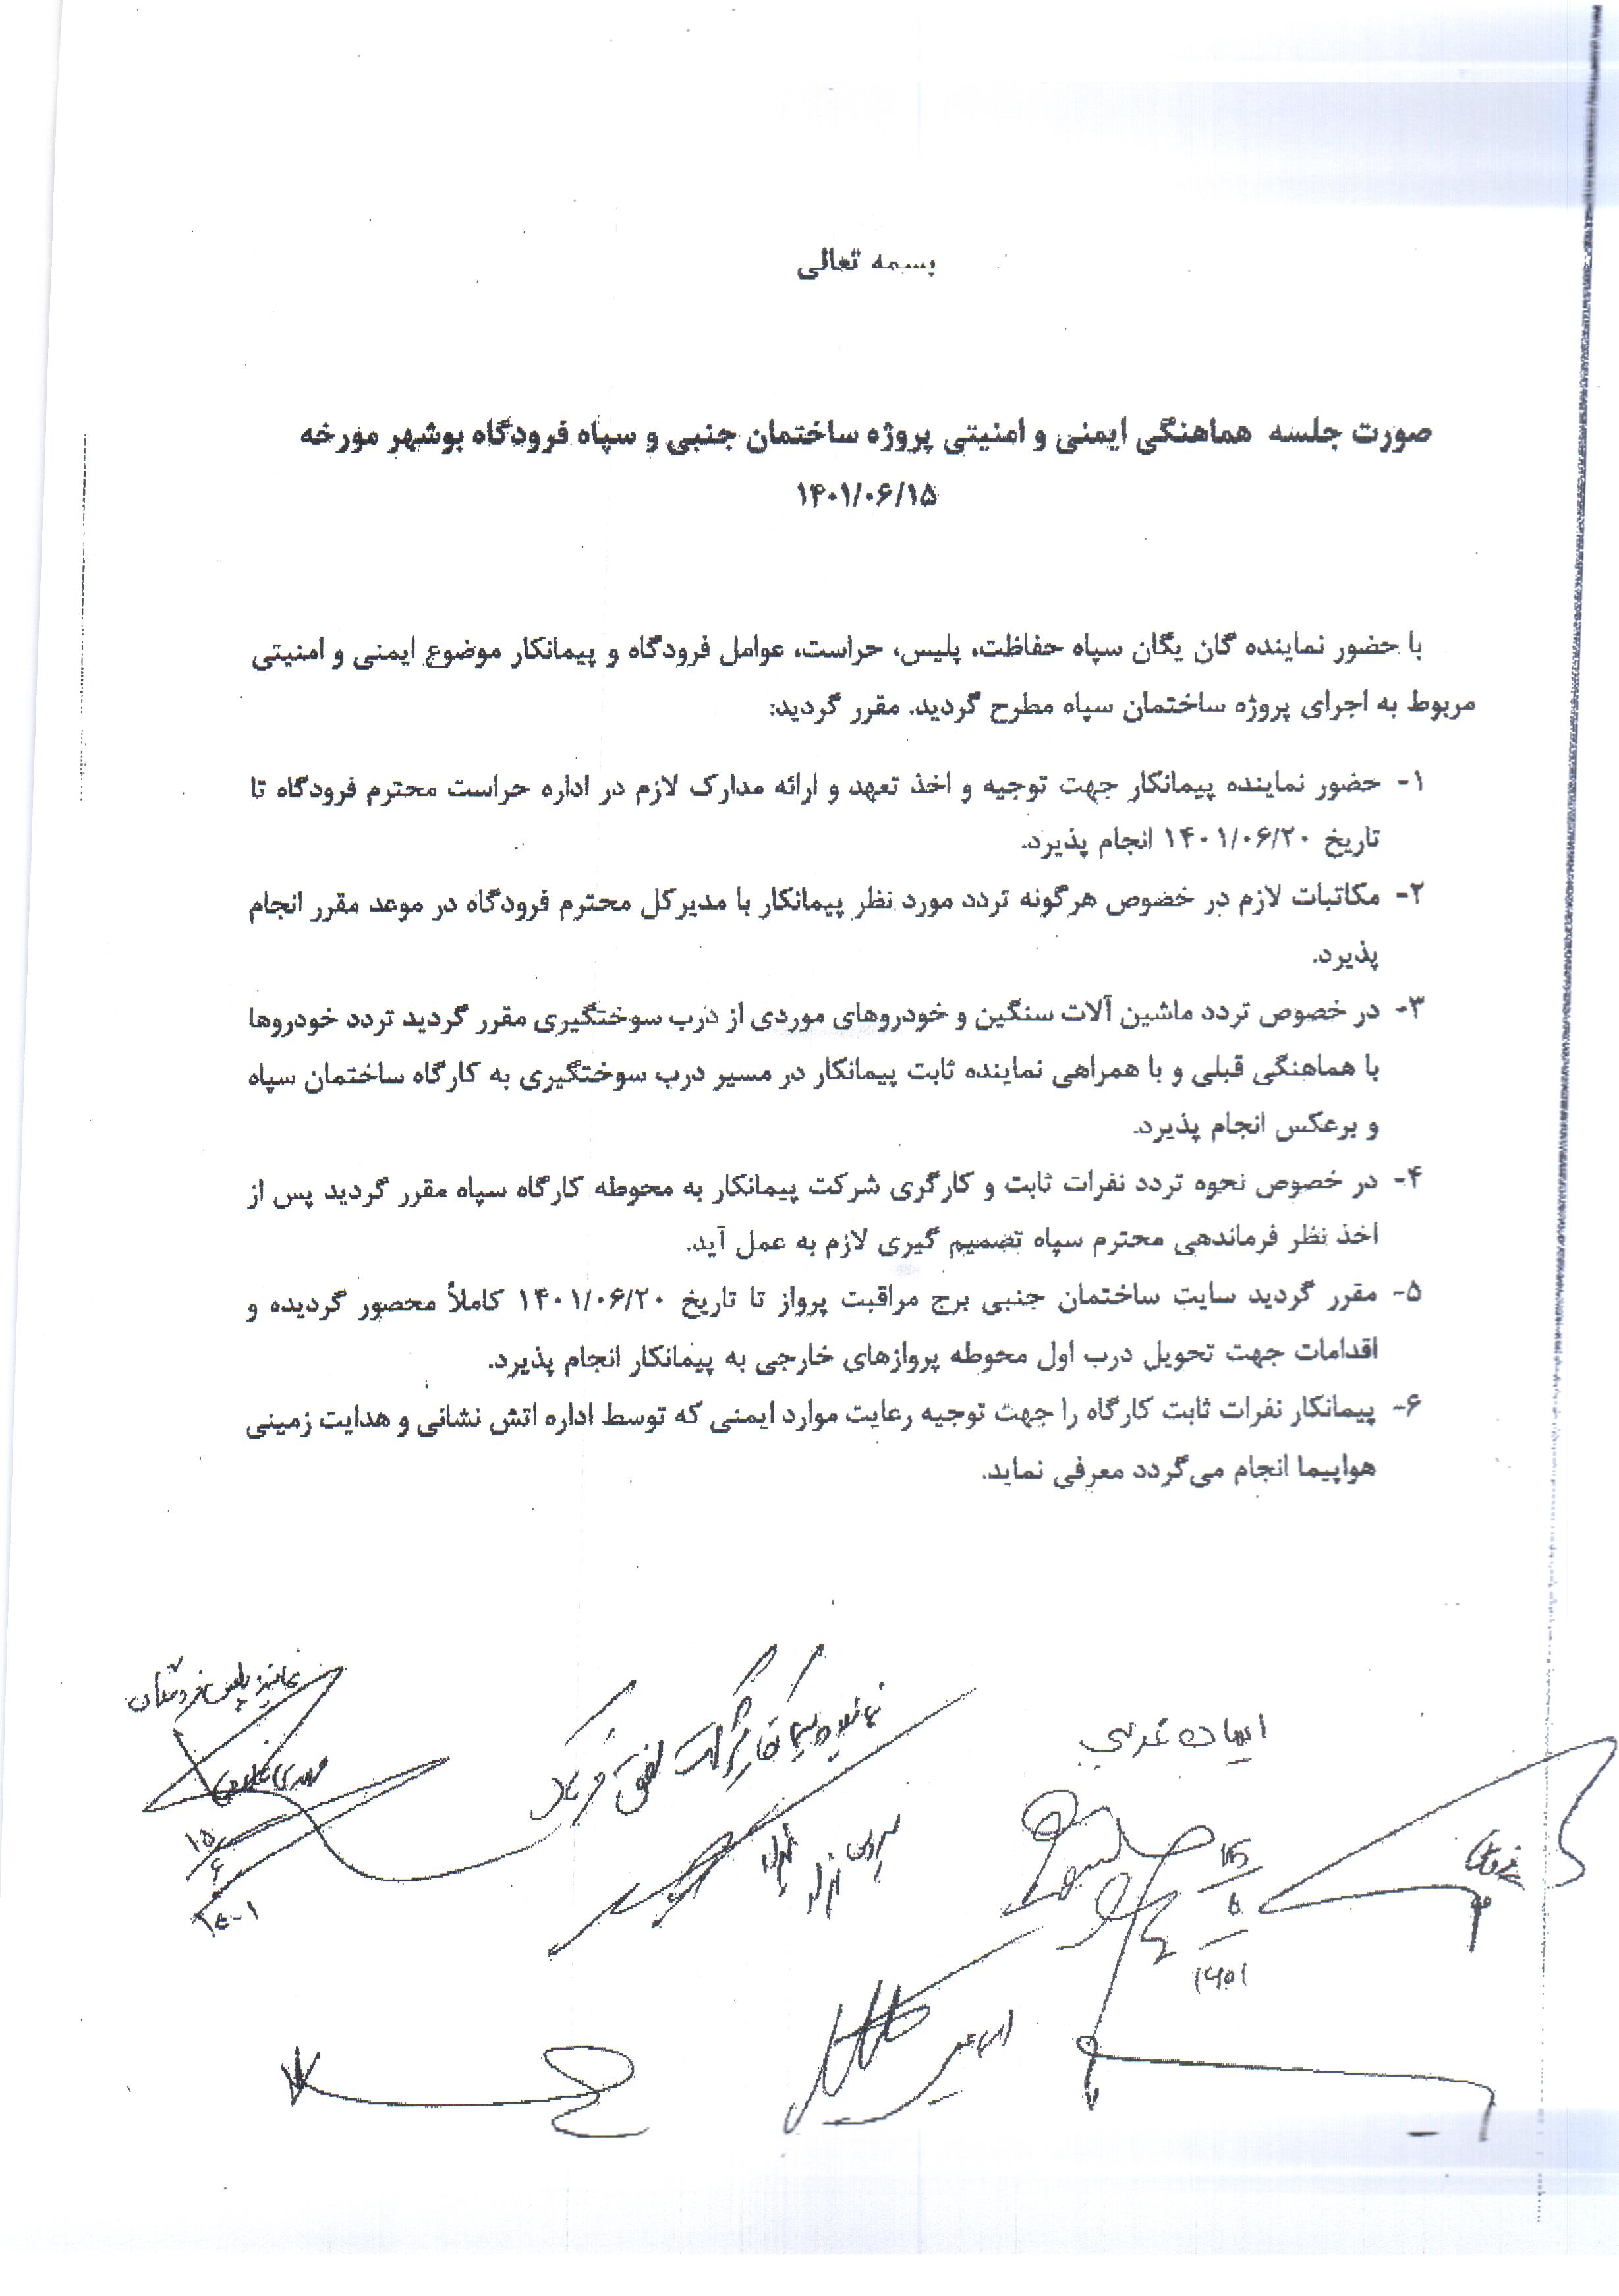 بسمه تعالی
صورت جلسه هماهنگی ایمنی و امنیتی پروژه ساختمان جنبی و سپاه فرودگاه بوشهر مورخه
۱۴۰۱/۰۶/۱۵
با حضور نماینده گان یگان سپاه حفاظت، پلیس، حراست، عوامل فرودگاه و پیمانکار موضوع ایمنی و امنیتی
مربوط به اجرای پروژه ساختمان سپاه مطرح گردید. مقرر گردید:
۱- حضور نماینده پیمانکار جهت توجیه و اخذ تعهد و ارائه مدارک لازم در اداره حراست محترم فرودگاه تا
تاریخ ۱۴۰۱/۰۶/۲۰ انجام پذیرد.
۲- مکاتبات لازم در خصوص هرگونه تردد مورد نظر پیمانکار با مدیرکل محترم فرودگاه در موعد مقرر انجام
پذیرد.
۳- در خصوص تردد ماشین آلات سنگین و خودروهای موردی از درب سوختگیری مقرر گردید تردد خودروها
با هماهنگی قبلی و با همراهی نماینده ثابت پیمانکار در مسیر درب سوختگیری به کارگاه ساختمان سپاه
و برعکس انجام پذیرد.
۴- در خصوص نحوه تردد نفرات ثابت و کارگری شرکت پیمانکار به محوطه کارگاه سپاه مقرر گردید پس از
اخذ نظر فرماندهی محترم سپاه تصمیم گیری لازم به عمل آید.
۵- مقرر گردید سایت ساختمان جنبی برج مراقبت پرواز تا تاریخ ۱۴۰۱/۰۶/۲۰ کاملاً محصور گردیده و
اقدامات جهت تحویل درب اول محوطه پروازهای خارجی به پیمانکار انجام پذیرد.
۶- پیمانکار نفرات ثابت کارگاه را جهت توجیه رعایت موارد ایمنی که توسط اداره اتش نشانی و هدایت زمینی
هواپیما انجام می‌گردد معرفی نماید.
نماینده پیمانکار شرکت
نماینده پلیس
۱۵
۶
۱۴۰۱
۱۴۰۱